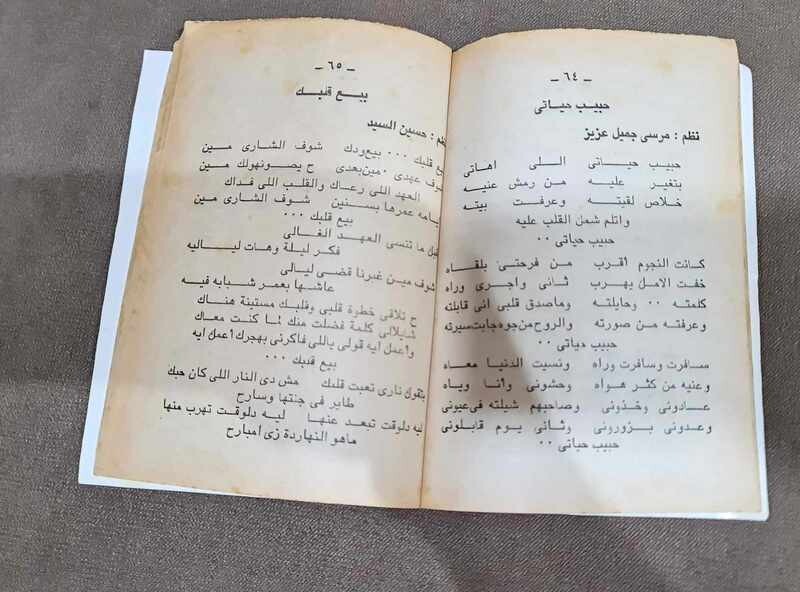 ـ ٦٤ ـ
حبيب حياتى
نظم : مرسى جميل عزيز
حبيب حياتى اللى اهاتى
بتغير عليه من رمش عنيه
خلاص لقيته وعرفت بيته
واتلم شمل القلب عليه
حبيب حياتى ٠٠
كانت النجوم أقرب من فرحتى بلقاه
خفت الامل يهرب ثانى واجرى وراه
كلمته ٠٠ وحايلته وماصدق قلبى انى قابلته
وعرفته من صورته والروح من جوه جابت سيرته
حبيب حياتى ٠٠
سافرت وسافرت وراه ونسيت الدنيا معاه
وعنيه من كثر هواه وحشونى وأنا وياه
عادونى وخذونى وصاحبهم شيلته فى عيونى
وعدونى بزورونى وثانى يوم قابلونى
حبيب حياتى ٠٠
ـ ٦٥ ـ
بيع قلبك
نظم : حسين السيد
بيع قلبك ٠٠٠ بيع ودك شوف الشارى مين
شوف عهدى ٠ مين بعدى ح يصونهولك مين
العهد اللى رعاك والقلب اللى فداك
أيامه عمرها بسنين شوف الشارى مين
بيع قلبك ٠٠٠
قبل ما تنسى العهد الغالى
فكر ليلة وهات لياليه
شوف مين غيرنا قضى ليالى
عاشها بعمر شبابه فيه
ح تلاقى خطوة قلبى وقلبك مستنية هناك
شايلالى كلمة فضلت منك لما كنت معاك
وأعمل ايه قولى ياللى فاكرنى بهجرك أعمل ايه
بيع قلبك ٠٠٠
بتقول نارى تعبت قلبك مش دى النار اللى كان حبك
طاير فى جنتها وسارح
ليه دلوقت تبعد عنها ليه دلوقت تهرب منها
ماهو النهاردة زى امبارح